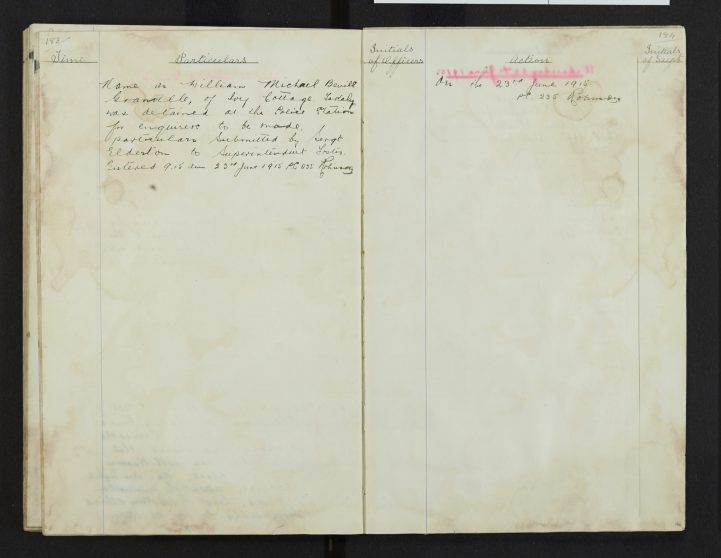 183
Time
Particulars
Initials
of Officers
Name as William Michael Bevill
Granville, of Ivy Cottage,
was detained at the Police Station
for enquires to be made.
particulars Submitted by Sergt
Elderton to Superintendent
Entered 9.15 am 23rd June 1915 PC 235
184
Action
Initials
of Supt
23rd June 1915
PC. 235